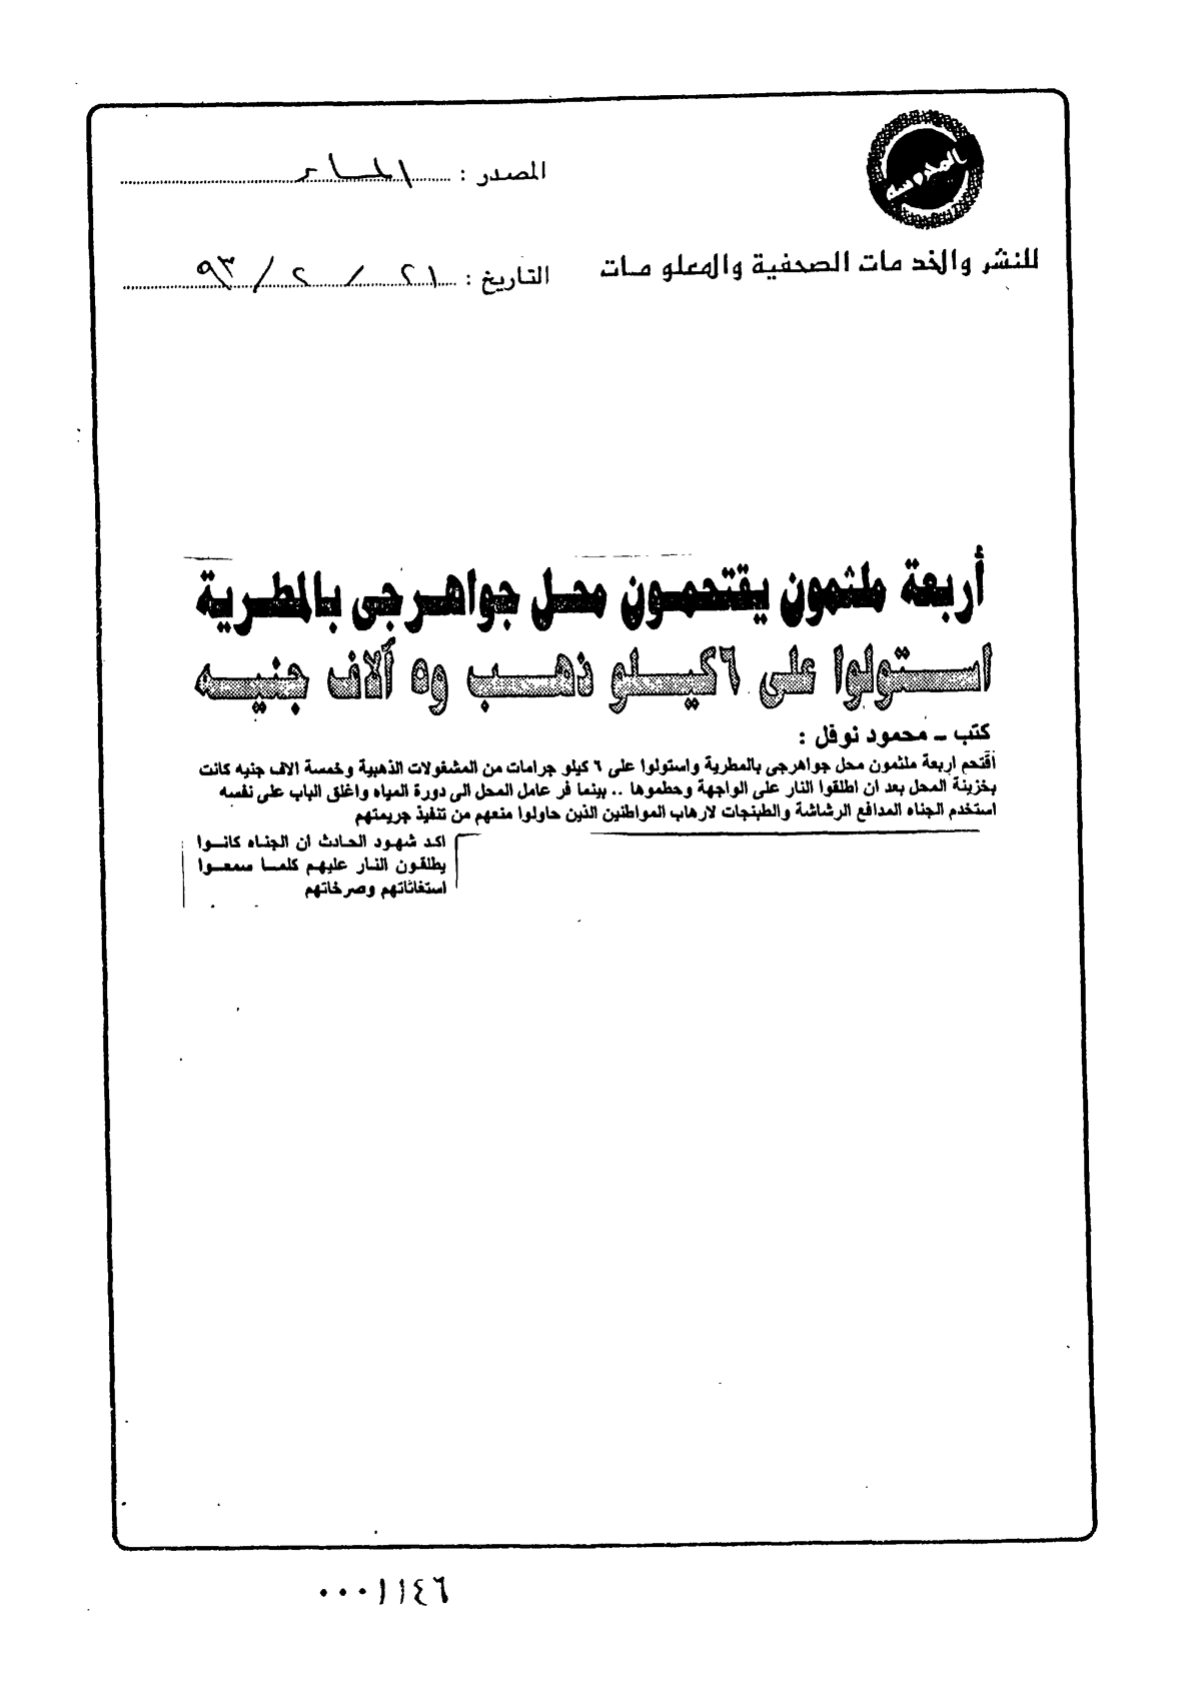 المحروسة
للنشر والخدمات الصحفية والمعلومات
المصدر : المساء
التاريخ : ٢١ / ٢ / ٩٣
أربعة ملثمون يقتحمون محل جواهرجى بالمطرية
استولوا على ٦ كيلو ذهب و٥ آلاف جنيه
كتب ــ محمود نوفل :
أقتحم اربعة ملثمون محل جواهرجى بالمطرية واستولوا على ٦ كيلو جرامات من المشغولات الذهبية وخمسة الاف جنيه كانت
بخزينة المحل بعد ان اطلقوا النار على الواجهة وحطموها .. بينما فر عامل المحل الى دورة المياه واغلق الباب على نفسه
استخدم الجناه المدافع الرشاشة والطبنجات لارهاب المواطنين الذين حاولوا منعهم من تنفيذ جريمتهم
اكد شهود الحادث ان الجناه كانوا
يطلقون النار عليهم كلما سمعوا
استغاثاتهم وصرخاتهم
٠٠٠١١٤٦